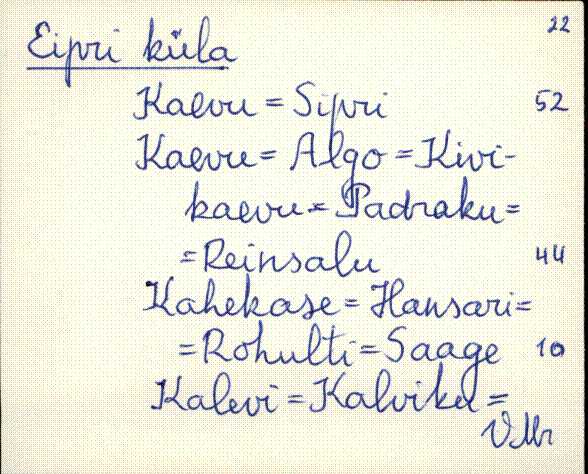 22
Eipri küla
Kaevu = Sipri 52
Kaevu = Algo = Kivi-
kaevu = Padraku =
= Reinsalu 44
Kahekase = Hansari =
= Rohulti = Saage 10
Kalevi = Kalviku =